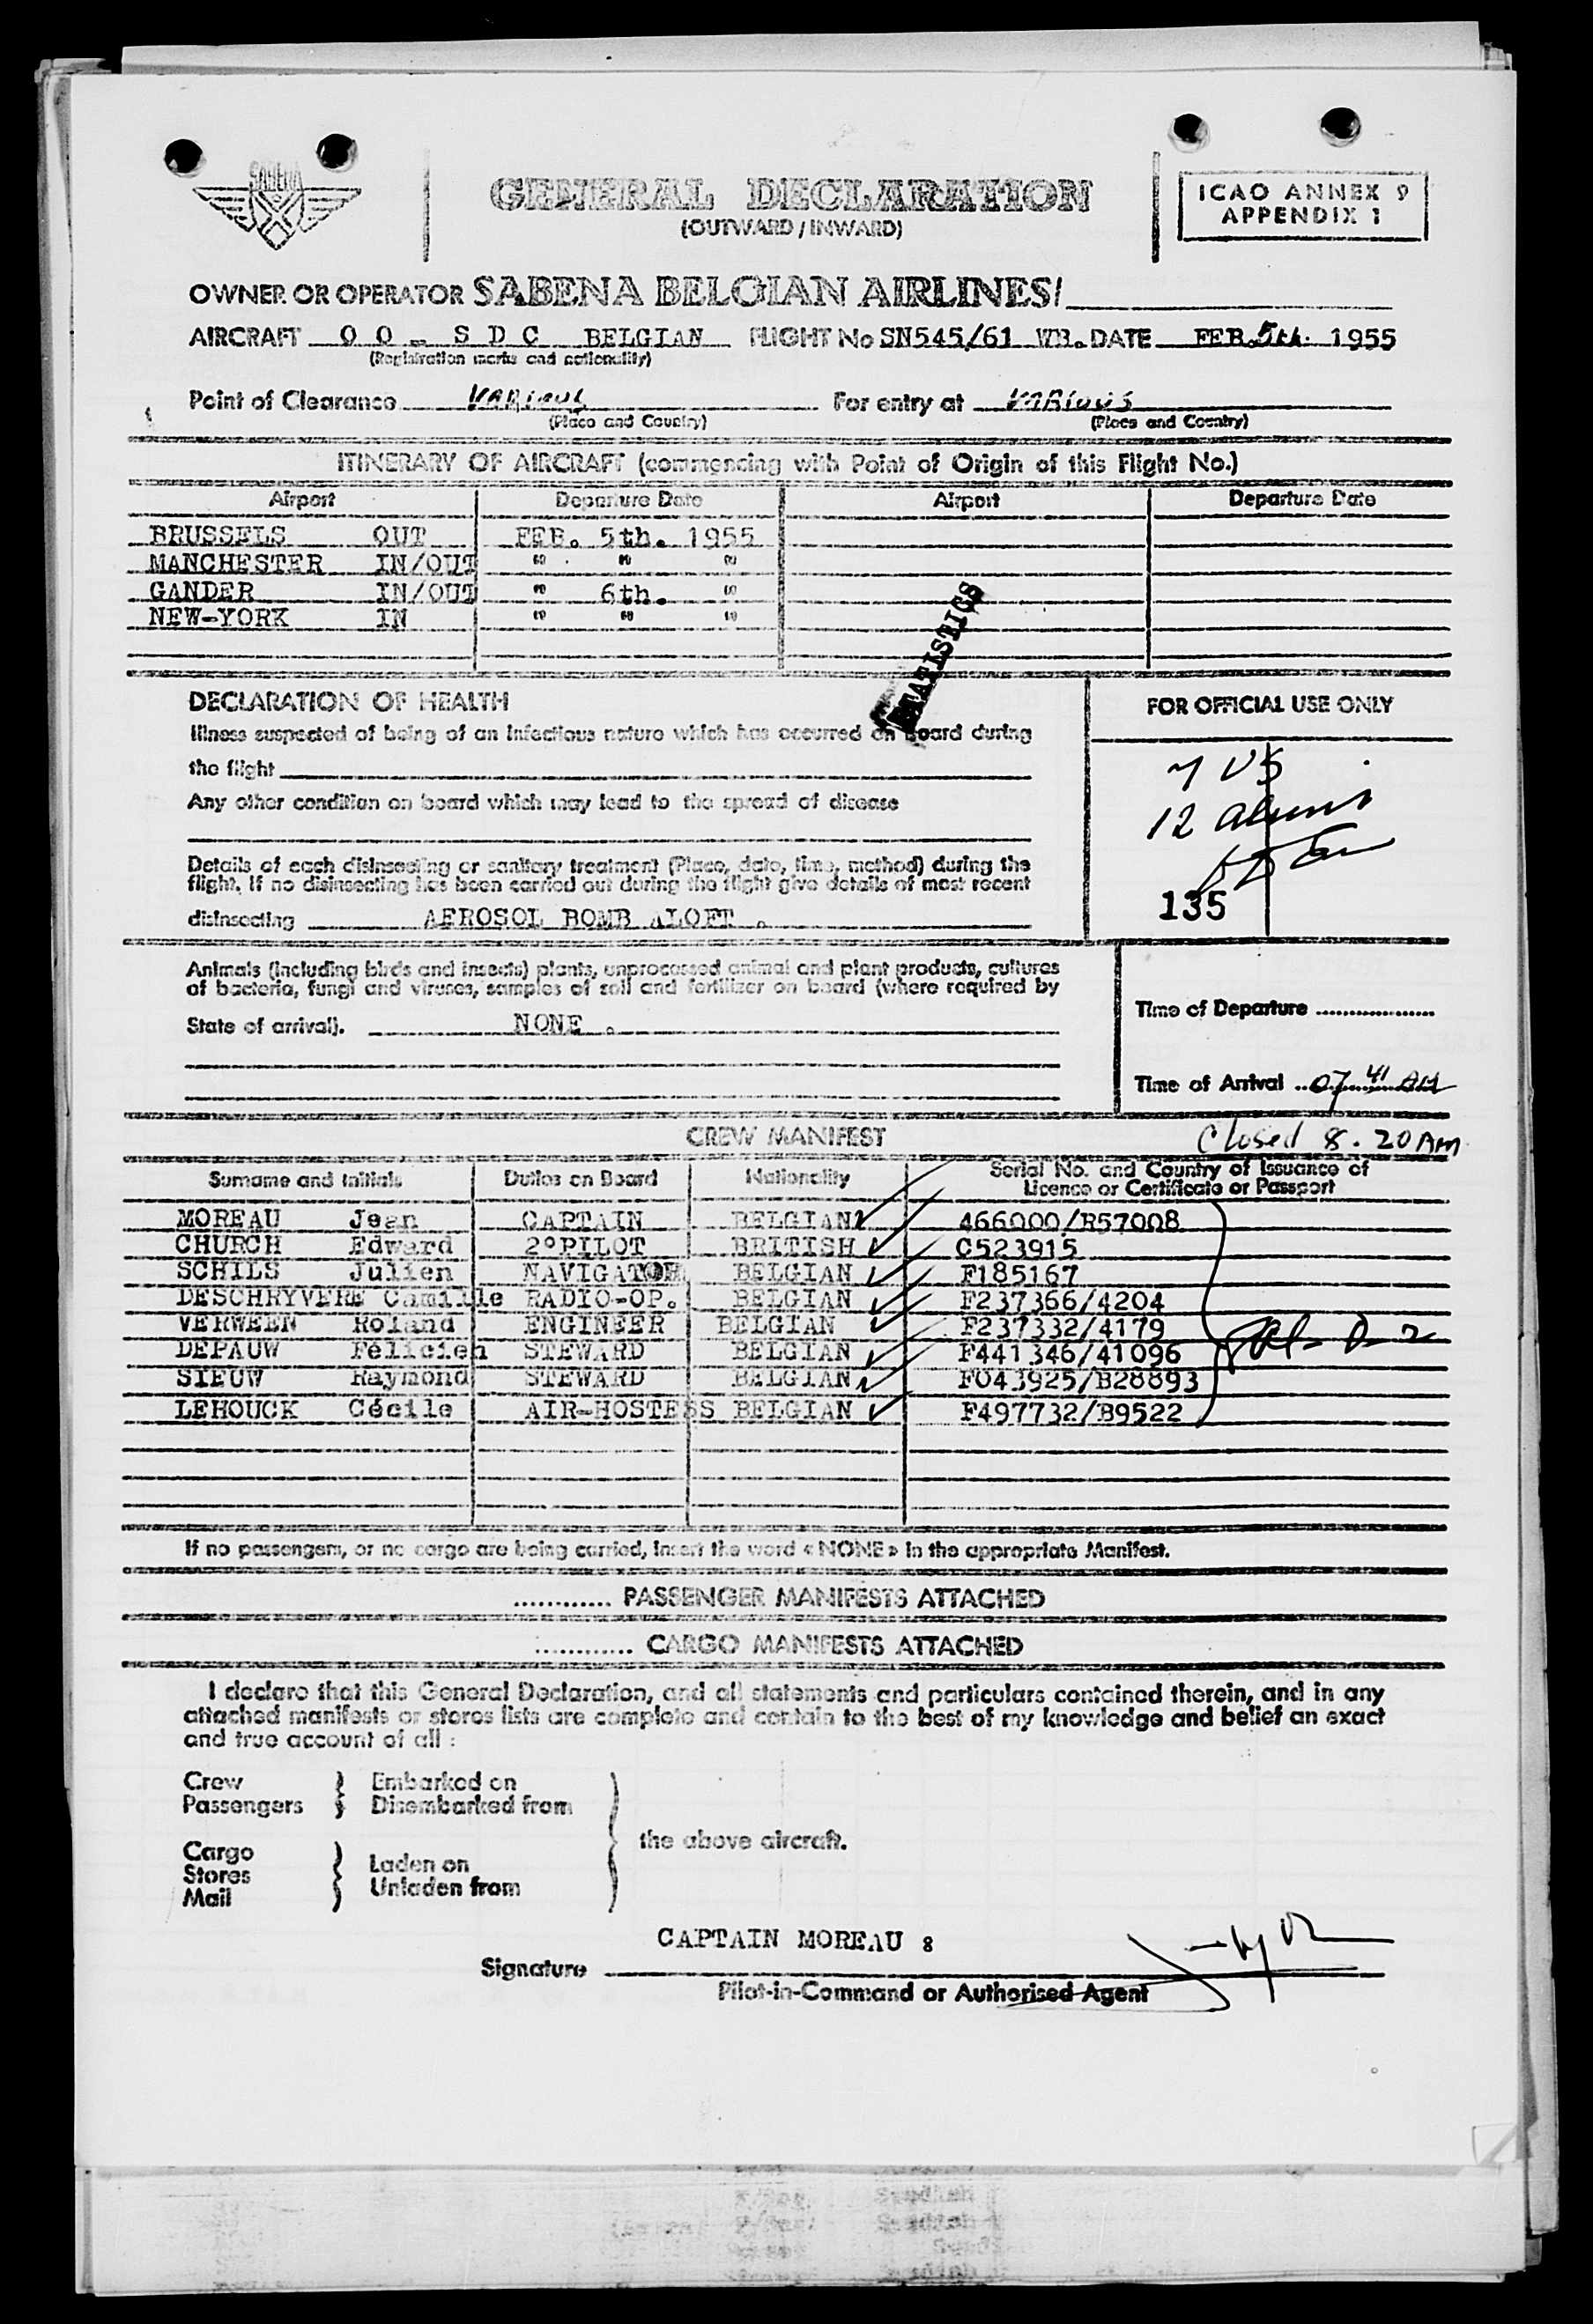 SABENA
GENERAL DECLARATION
(OUTWARD / INWARD)
ICAO ANNEX 9
APPENDIX 1
OWNER OR OPERATOR SABENA BELGIAN AIRLINES/
AIRCRAFT OO - SDC BELGIAN FLIGHT No SN545/61 WB. DATE FEB. 5th. 1955
(Registration marks and nationality)
Point of Clearance VARIOUS For entry at VARIOUS
(Place and Country) (Place and Country)
ITINERARY OF AIRCRAFT (commencing with Point of Origin of this Flight No.)
Airport Departure Date Airport Departure Date
BRUSSELS OUT FEB. 5th. 1955
MANCHESTER IN/OUT " " "
GANDER IN/OUT " 6th. "
NEW-YORK IN " " "
STATISTICS
DECLARATION OF HEALTH
FOR OFFICIAL USE ONLY
Illness suspected of being of an infectious nature which has occurred on board during
the flight
7 US
Any other condition on board which may lead to the spread of disease
12 aliens
Details of each disinsecting or sanitary treatment (Place, date, time, method) during the
flight. If no disinsecting has been carried out during the flight give details of most recent
135
disinsecting AEROSOL BOMB ALOFT .
Animals (including birds and insects) plants, unprocessed animal and plant products, cultures
of bacteria, fungi and viruses, samples of soil and fertilizer on board (where required by
Time of Departure
State of arrival). NONE .
Time of Arrival 07 41 AM
CREW MANIFEST
Closed 8.20 AM
Surname and Initials Duties on Board Nationality Serial No. and Country of Issuance of
Licence or Certificate or Passport
MOREAU Jean CAPTAIN BELGIAN 466000/B57008
CHURCH Edward 2°PILOT BRITISH C523915
SCHILS Julien NAVIGATOR BELGIAN F185167
DESCHRYVERE Camille RADIO-OP. BELGIAN F237366/4204
VERWEEN Roland ENGINEER BELGIAN F237332/4179
DEPAUW Félicien STEWARD BELGIAN F441346/41096
SIEUW Raymond STEWARD BELGIAN F043925/B28893
LEHOUCK Cécile AIR-HOSTESS BELGIAN F497732/B9522
If no passengers, or no cargo are being carried, insert the word «NONE» in the appropriate Manifest.
............ PASSENGER MANIFESTS ATTACHED
............ CARGO MANIFESTS ATTACHED
I declare that this General Declaration, and all statements and particulars contained therein, and in any
attached manifests or stores lists are complete and contain to the best of my knowledge and belief an exact
and true account of all :
Crew } Embarked on
Passengers } Disembarked from
the above aircraft.
Cargo
Stores } Laden on
Mail } Unladen from
CAPTAIN MOREAU :
Signature
Pilot-in-Command or Authorised Agent